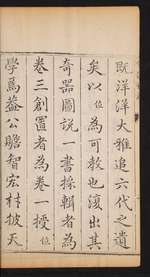 既洋洋大雅追六代之遺
矣以位為可教也復出其
奇器圖說一書採輯者為
卷三創置者為卷一授位
學篤益公贍智宏材披天